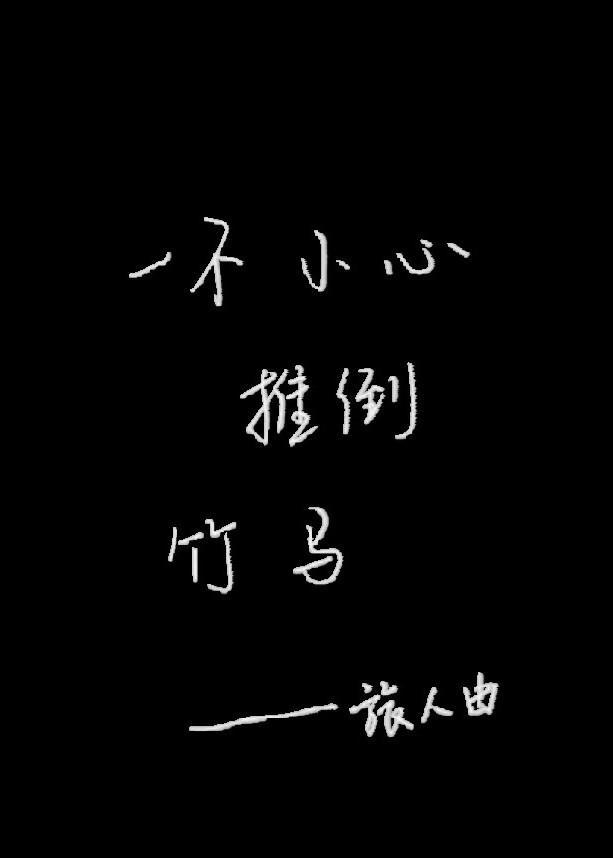 一不小心
推倒
竹马
——旅人由